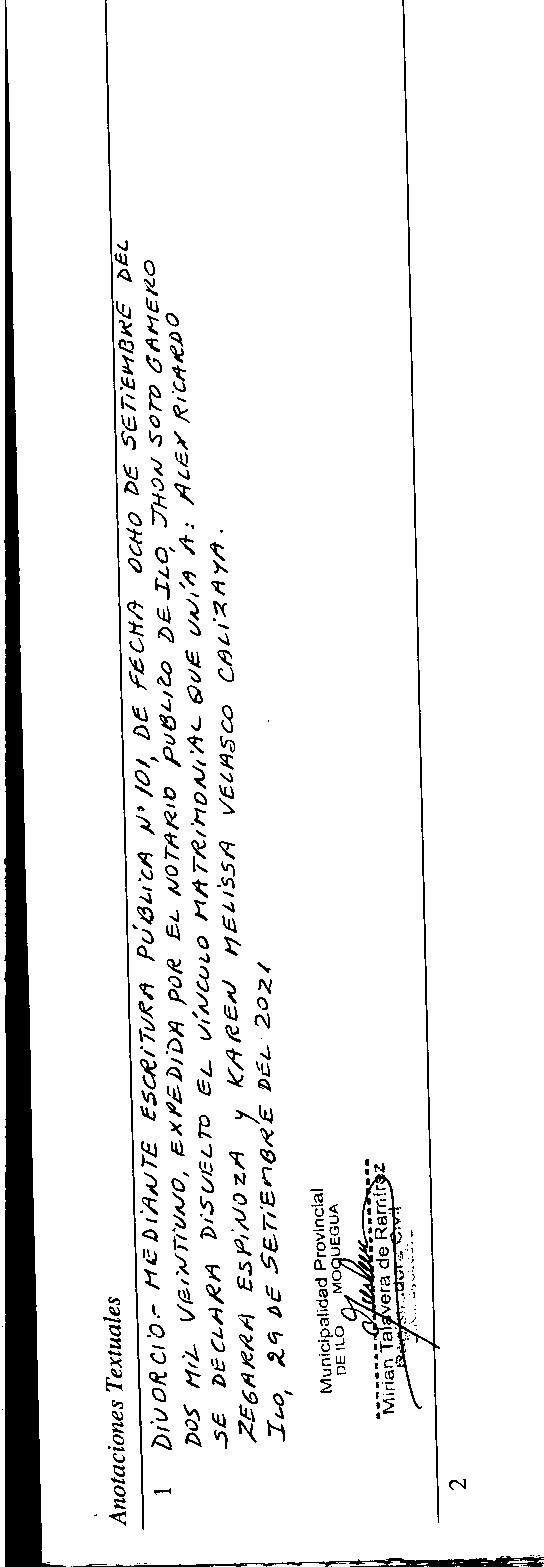 Anotaciones Textuales
1 DIVORCIO.- MEDIANTE ESCRITURA PÚBLICA N° 101, DE FECHA OCHO DE SETIEMBRE DEL
DOS MIL VEINTIUNO, EXPEDIDA POR EL NOTARIO PUBLICO DE ILO, JHON SOTO GAMERO
SE DECLARA DISUELTO EL VÍNCULO MATRIMONIAL QUE UNÍA A: ALEX RICARDO
ZEGARRA ESPINOZA Y KAREN MELISSA VELASCO CALIZAYA.
ILO, 29 DE SETIEMBRE DEL 2021
Municipalidad Provincial
DE ILO MOQUEGUA
Mirian Talavera de Ramírez
Civil
2